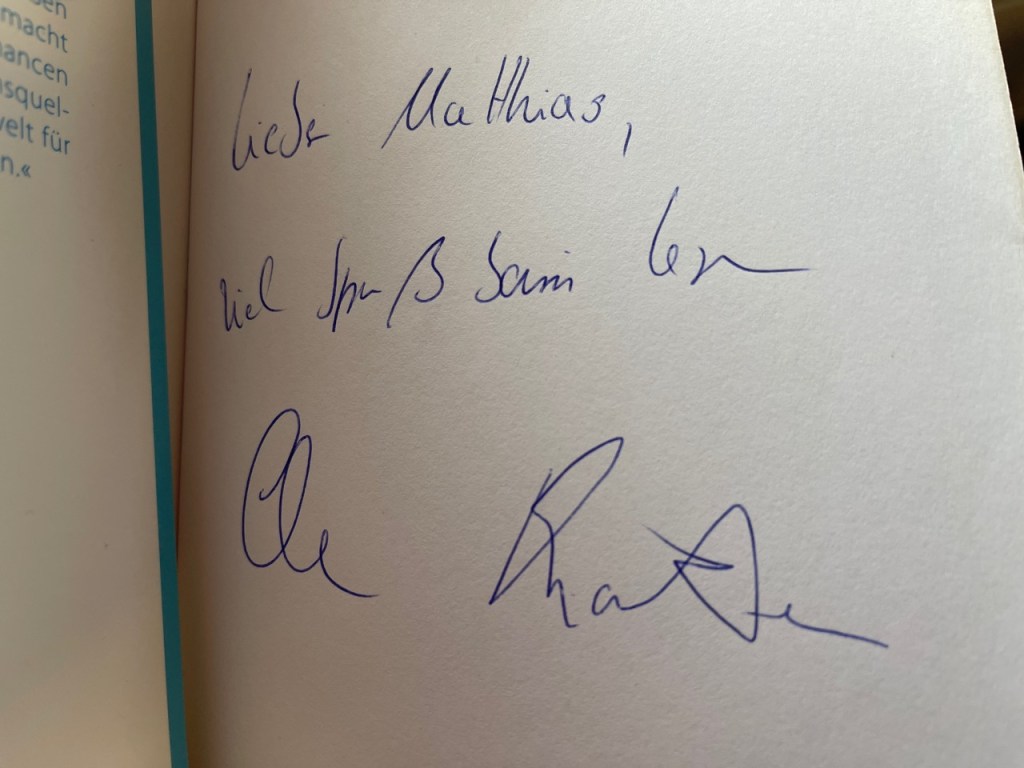 macht
ancen
squel-
velt für
n.«
Lieber Matthias,
viel Spaß beim Lesen
Ole